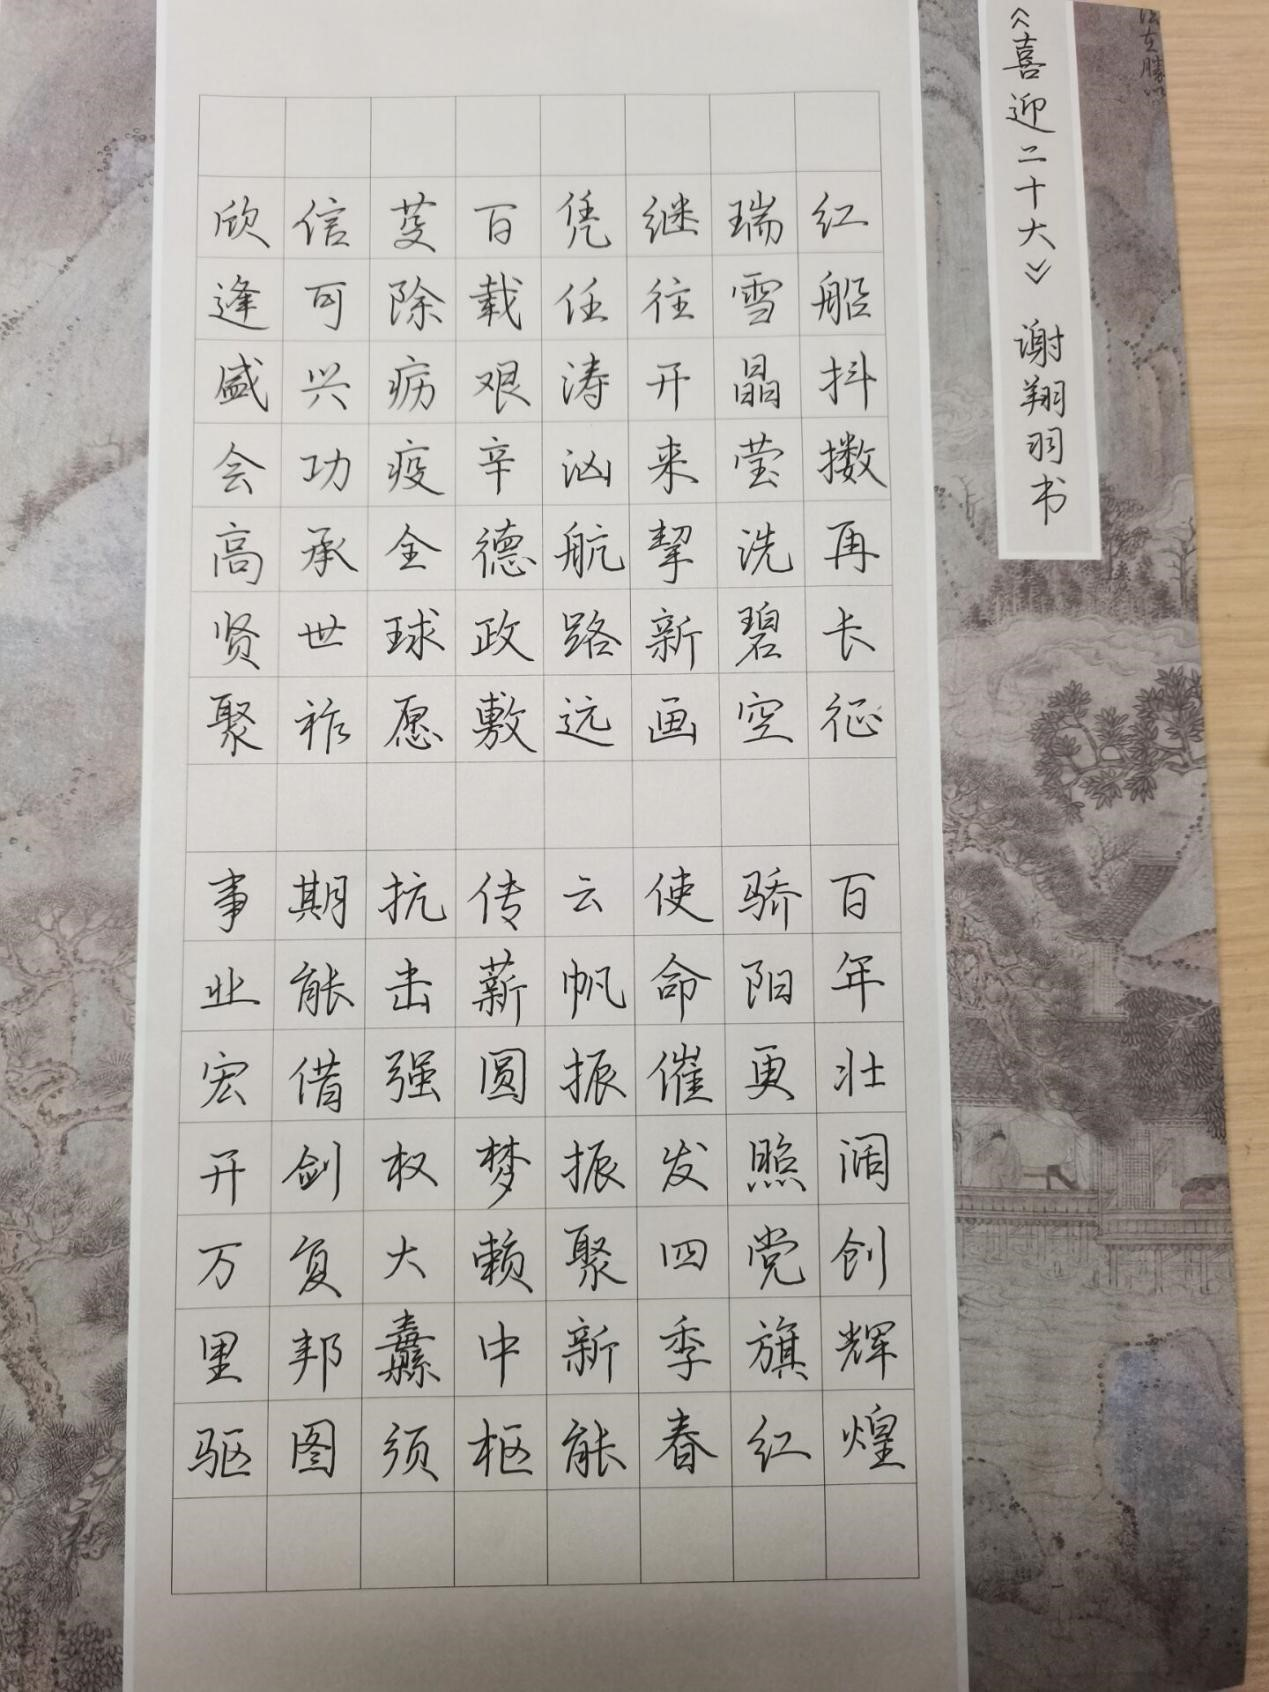 《喜迎二十大》 谢翔羽书
红船抖擞再长征 百年壮阔创辉煌
瑞雪晶莹洗碧空 骄阳更照党旗红
继往开来挈新画 使命催发四季春
凭任涛汹航路远 云帆振振聚新能
百载艰辛德政敷 传薪圆梦赖中枢
芟除疠疫全球愿 抗击强权大纛须
信可兴功承世祚 期能借剑复邦图
欣逢盛会高贤聚 事业宏开万里驱